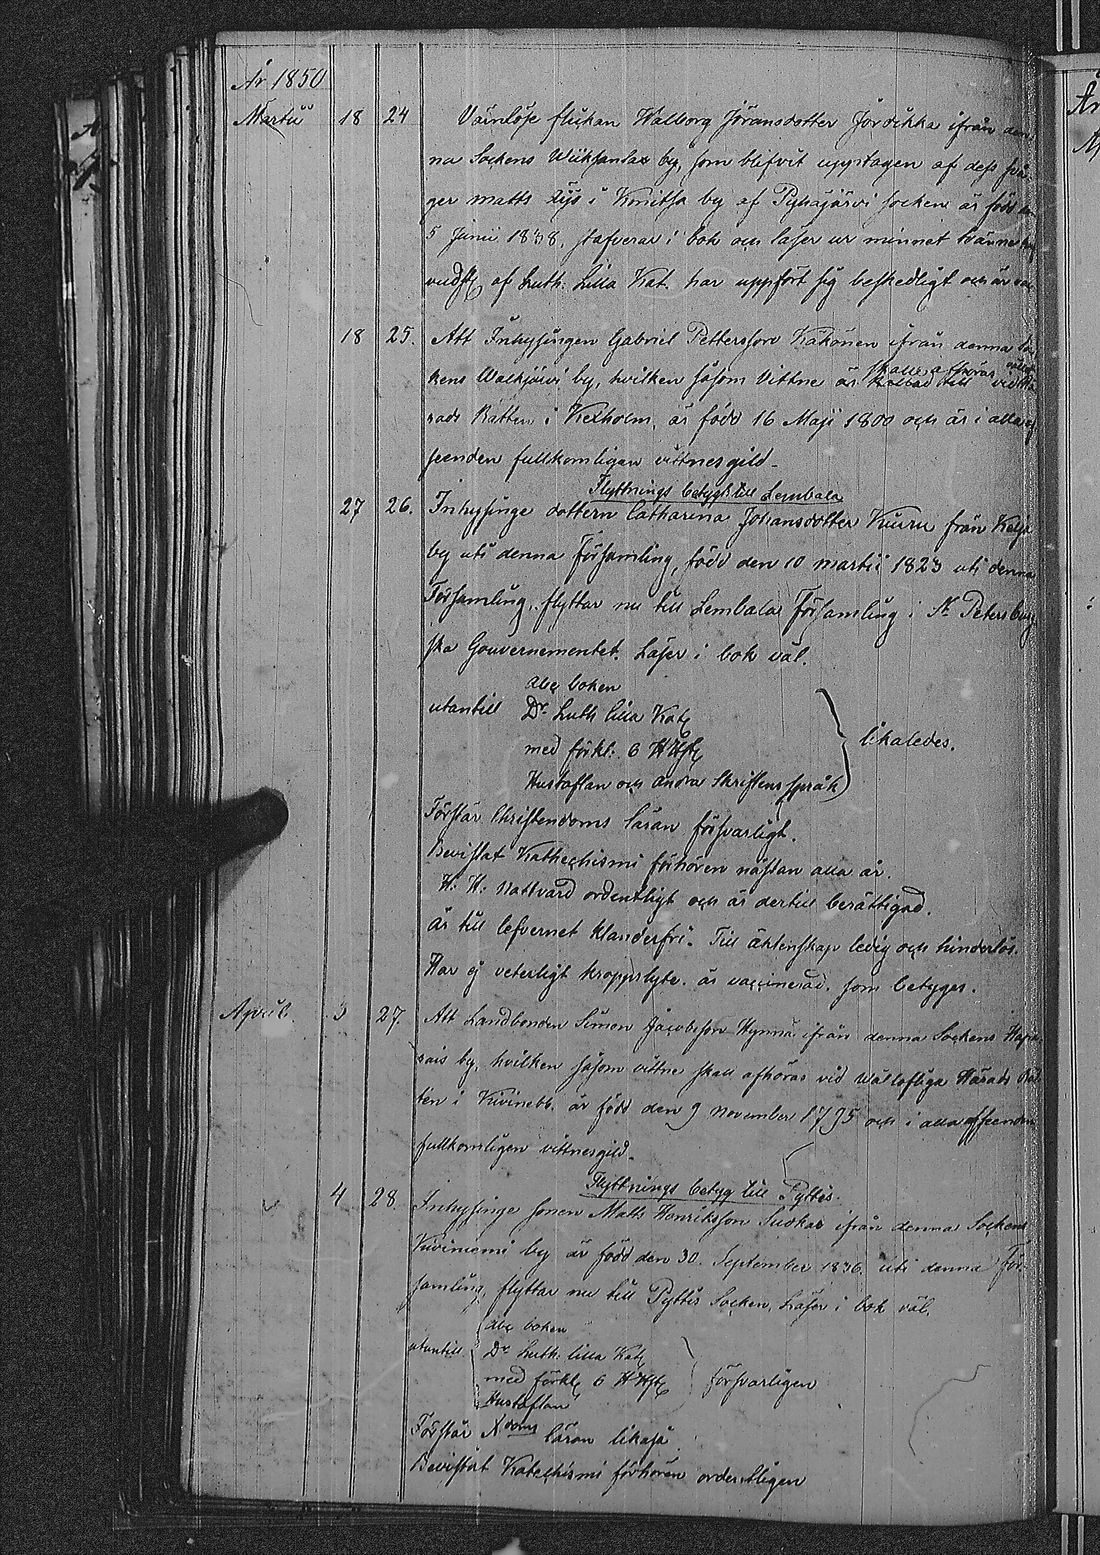 År 1850
Martii 18 24 Värnlösa flickan Walborg Jöransdotter Jordikka ifrån den
na Sockens by, som blifvit upptagen af dess svå
ger Matts i by af Pyhäjärvi socken är född den
5 Junii 1838, stafverar i bok och läser ur minnet
af Luth. Lilla Kat. har uppfört sig beskedligt och är
18 25. Att Inhysingen Gabriel Pettersson Käkönen ifrån denna So
skall afhöras
kens Walkjärvi by, hvilken såsom Vittne är kallad till
rads Rätten i Kexholm, är född 16 Maji 1800 och är i alla
seenden fullkomligen vittnesgild.
Flyttnings betyg till Lembala
27 26. Inhysinge dottern Catharina Johansdotter Kuuru från Katja
by uti denna Församling, född den 10 Martii 1823 uti denna
Församling, flyttar nu till Lembala Församling i St Petersburg
ska Gouvernementet. Läser i bok väl.
abc boken
utantill Dr Luth lilla Kat
med förkl. o
Hustaflan och andra Skriftens språk
likaledes.
Förstår Christendoms läran försvarligt.
Bevistat Kathechismi förhören nästan alla år.
H: H: Nattvard ordentligt och är dertill berättigad.
är till lefvernet klanderfri. Till äktenskap ledig och hinderlös.
Har ej veterligt kroppslyte. är vaccinerad. som betygar.
April 3 27. Att Landbonden Simon Jacobsson Hynnä ifrån denna Sockens
by, hvilken såsom vittne skall afhöras vid Wällofliga Härads Rät
ten i Kivineb. är född den 9 November 1795 och i alla afseenden
fullkomligen vittnesgild.
Flyttnings betyg till Pyttis.
4 28. Inhysinge sonen Matts Henriksson Suokas ifrån denna Sockens
Kiviniemi by är född den 30. September 1836 uti denna För
samling, flyttar nu till Pyttis Socken, Läser i bok väl.
abc boken
utantill Dr Luth. lilla Kat
med förkl o
Hustaflan
försvarligen
Förstår Xdoms läran likaså
Bevistat Katechismi förhören ordentligen